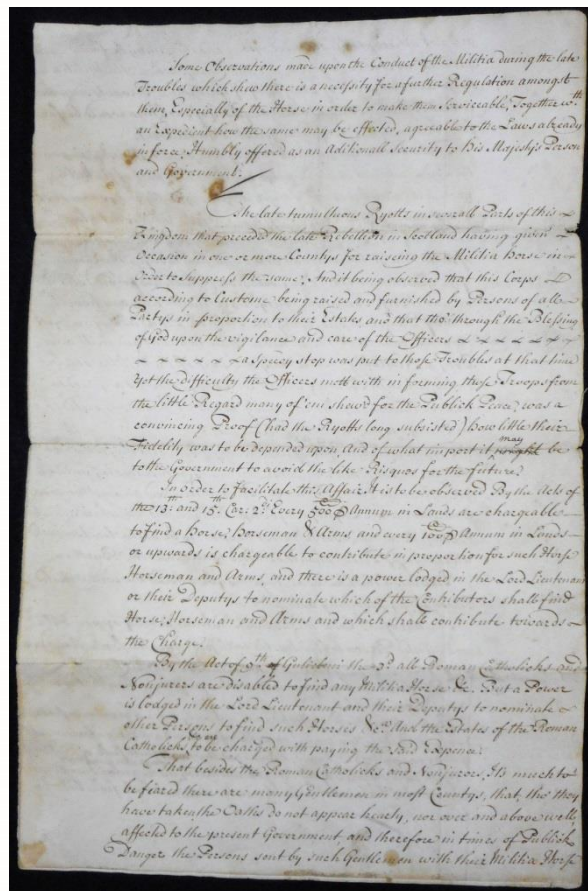 Some Observations made upon the Conduct of the Militia during the late
Troubles which shew there is a necessity for a further Regulation amongst
them, Especially of the Horse in order to make them Serviceable, Together wth
an Expedient how the same may be effected, agreable to the Laws already
in force, Humbly offered as an Aditionall Security to His Majesty's Person
and Government.
The late tumultuous Ryotts in severall Parts of this
Kingdom that preceded the late Rebellion in Scotland having given
Occasion in one or more Countys for raising the Militia Horse in
Order to suppress the same, And it being observed that this Corps
according to Custome being raised and furnished by Persons of all
Partys in proportion to their Estates and that tho' through the Blessing
of God upon the vigilance and care of the Officers
a Speedy stop was put to those Troubles at that time
yet the difficulty the Officers mett with in forming those Troops from
the little Regard many of 'em shew'd for the Publick Peace, was a
convincing Proof (had the Ryotts long subsisted) How little their
Fidelity was to be depended upon, And of what import it may be
to the Government to avoid the like Risques for the future.
In order to facilitate this Affair It is to be observed By the Acts of
the 13th and 15th Car: 2d Every 500£ P Annum in Lands are chargeable
to find a Horse, Horseman & Arms and every 100£ P Annum in Lands
or upwards is chargeable to contribute in proportion for such Horse
Horseman and Arms, and there is a power lodged in the Lord Lieutenant
or their Deputys to nominate which of the Contributors shall find
Horse, Horseman and Arms and which shall contribute towards
the Charge.
By the Act of 9th of Gulielmi the 3d all Roman Catholicks and
Nonjurers are disabled to find any Militia Horse &c. But a Power
is lodged in the Lord Lieutenant and their Deputys to nominate
other Persons to find such Horses &c. And the Estates of the Roman
Catholicks, to be charged with paying the said Expence.
That besides the Roman Catholicks and Nonjurors, Its much to
be feared there are many Gentlemen in most Countys, that, tho' they
have taken the Oaths do not appear hearty, nor over and above well
affected to the present Government and therefore in times of Publick
Danger the Persons sent by such Gentlemen with their Militia Horse